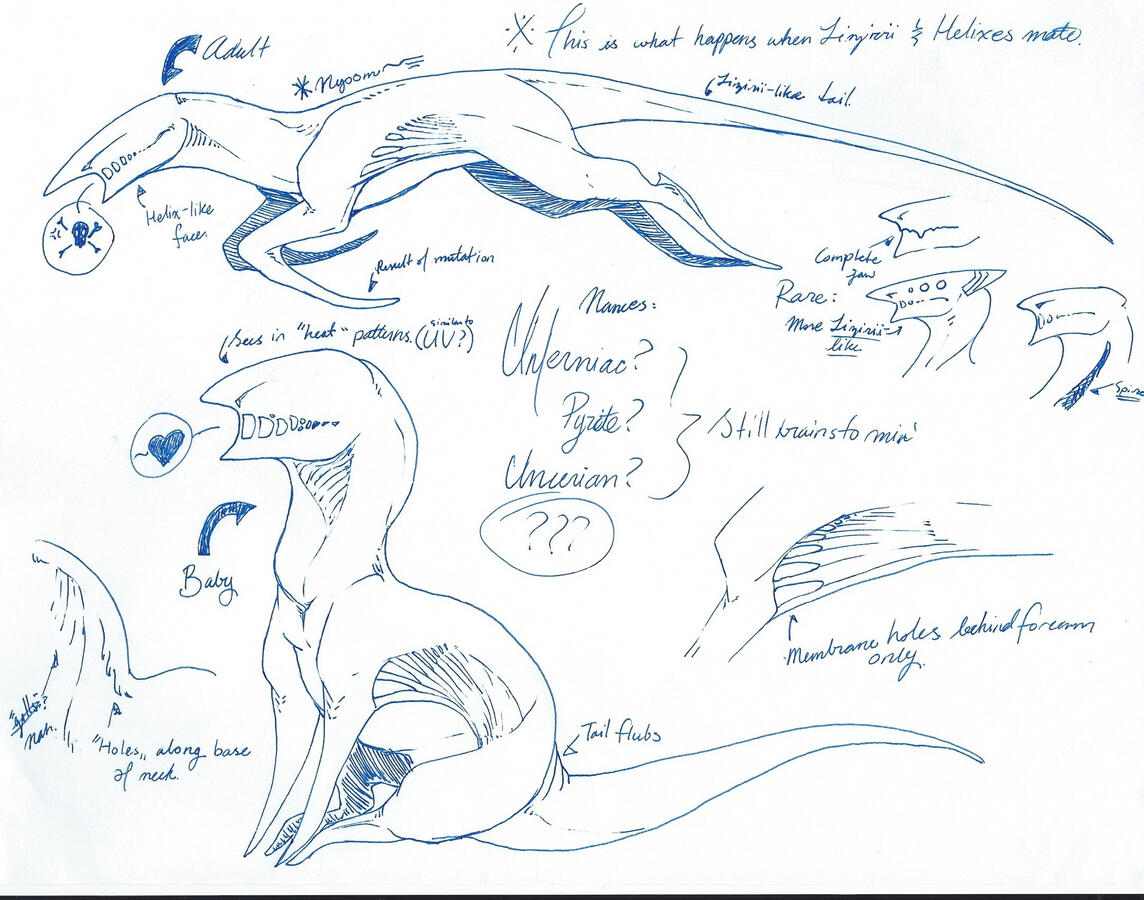 ※ This is what happens when Linjirii & Helixes mate.
Adult
*Nyoom
Linjirii-like tail.
Helix-like
face.
Result of mutation
Complete
jaw
Rare:
More
like.
Spine
Sees in "heat" patterns. (similar to UV?)
Names:
Pyrite?
???
Still brainstormin'
Baby
Membrane holes behind forearm
only.
"gills"?
nah.
"Holes" along base
of neck.
Tail flubs